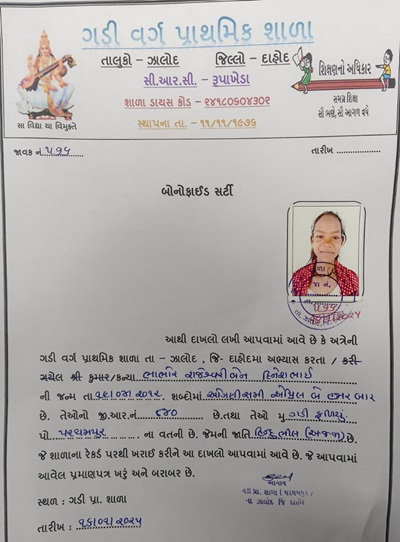 ગડી વર્ગ પ્રાથમિક શાળા
તાલુકો - ઝાલોદ જિલ્લો - દાહોદ
સી.આર.સી. - રૂપાખેડા
શાળા ડાયસ કોડ - ૨૪૧૮૦૬૦૪૩૦૨
સ્થાપના તા. - ૧૧/૧૧/૧૯૭૬
સા વિદ્યા યા વિમુક્તે
શિક્ષણનો અધિકાર
સમગ્ર શિક્ષા
સૌ ભણે, સૌ આગળ વધે
જાવક નં. ૫૧૫ તારીખ ................
બોનોફાઈડ સર્ટી
આથી દાખલો લખી આપવામાં આવે છે કે અત્રેની
ગડી વર્ગ પ્રાથમિક શાળા તા - ઝાલોદ , જિ- દાહોદમા અભ્યાસ કરતા / કરી
ગયેલ શ્રી કુમાર/કન્યા ભાભોર રાજેશ્વરીબેન દિનેશભાઈ
ની જન્મ તા. ૧૬/૦૪/૨૦૧૨. શબ્દોમાં એપ્રિલ બે હજાર બાર
છે. તેઓનો જી.આર.નં. ૬૪૦ છે.તથા તેઓ મુ. ગડી ફળિયું
પો. પરથમપુર ના વતની છે. જેમની જાતિ હિન્દુ ભીલ (અ.જ.જા) છે.
જે શાળાના રેકર્ડ પરથી ખરાઈ કરીને આ દાખલો આપવામાં આવે છે. જે આપવામાં
આવેલ પ્રમાણપત્ર ખરૂં અને બરાબર છે.
આચાર્ય
ગડી પ્રા. શાળા (પરથમપુર)
તા ઝાલોદ જિ દાહોદ
સ્થળ : ગડી પ્રા. શાળા
તારીખ :